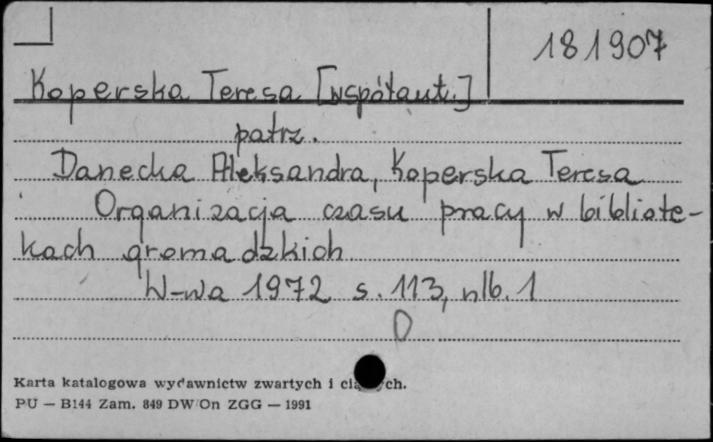 181907
Koperska Teresa [współaut.]
patrz.
Danecka Aleksandra, Koperska Teresa
Organizacja czasu pracy w bibliote-
kach gromadzkich
W-wa 1972 s. 113, nlb. 1
Karta katalogowa wydawnictw zwartych i ch.
PU — B144 Zam. 849 DW/On ZGG — 1991